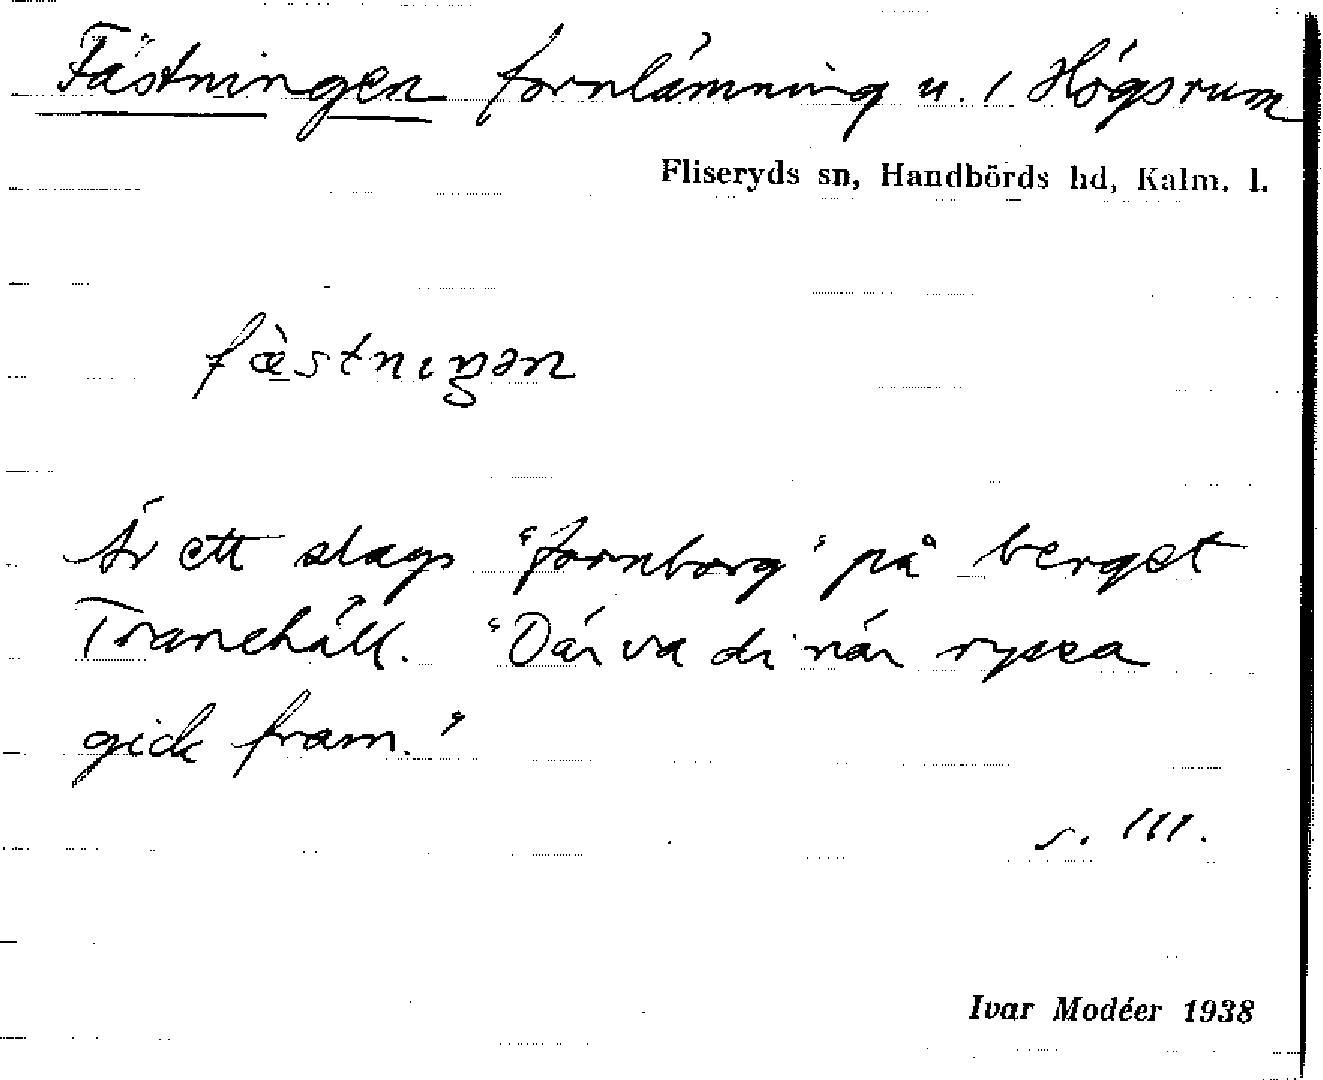 Fästningen fornlämning u. 1 Högsrum
Fliseryds sn, Handbörds hd, Kalm. l.
fæ̀stnıŋən
Är ett slags "fornborg" på berget
Tranehäll. "Där va di när ryssa
gick fram."
s. 111.
Ivar Modéer 1938